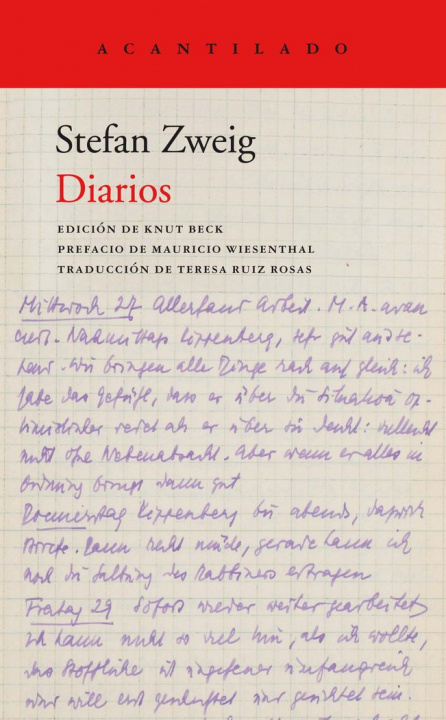 ACANTILADO
Stefan Zweig
Diarios
EDICIÓN DE KNUT BECK
PREFACIO DE MAURICIO WIESENTHAL
TRADUCCIÓN DE TERESA RUIZ ROSAS
Mittwoch 27 Allerhand Arbeit. M. A.
Nachmittags Kippenberg, sehr gut
Wir bringen alle Dinge rasch auf gleich: ich
habe das Gefühl, dass er über die Situation op-
timistischer redet als er über sie denkt: vielleicht
nicht ohne Nebenabsicht. Aber wenn er alles in
Ordnung bringt dann gut
Donnerstag Kippenberg bis abends,
recht müde, gerade kann ich
noch die des Rabbiners ertragen
Freitag 29 Sofort wieder weiter gearbeitet
ich kann nicht so viel hin, als ich wollte,
das Stoffliche ist ungeheuer umfangreich
will erst und gesichtet sein.